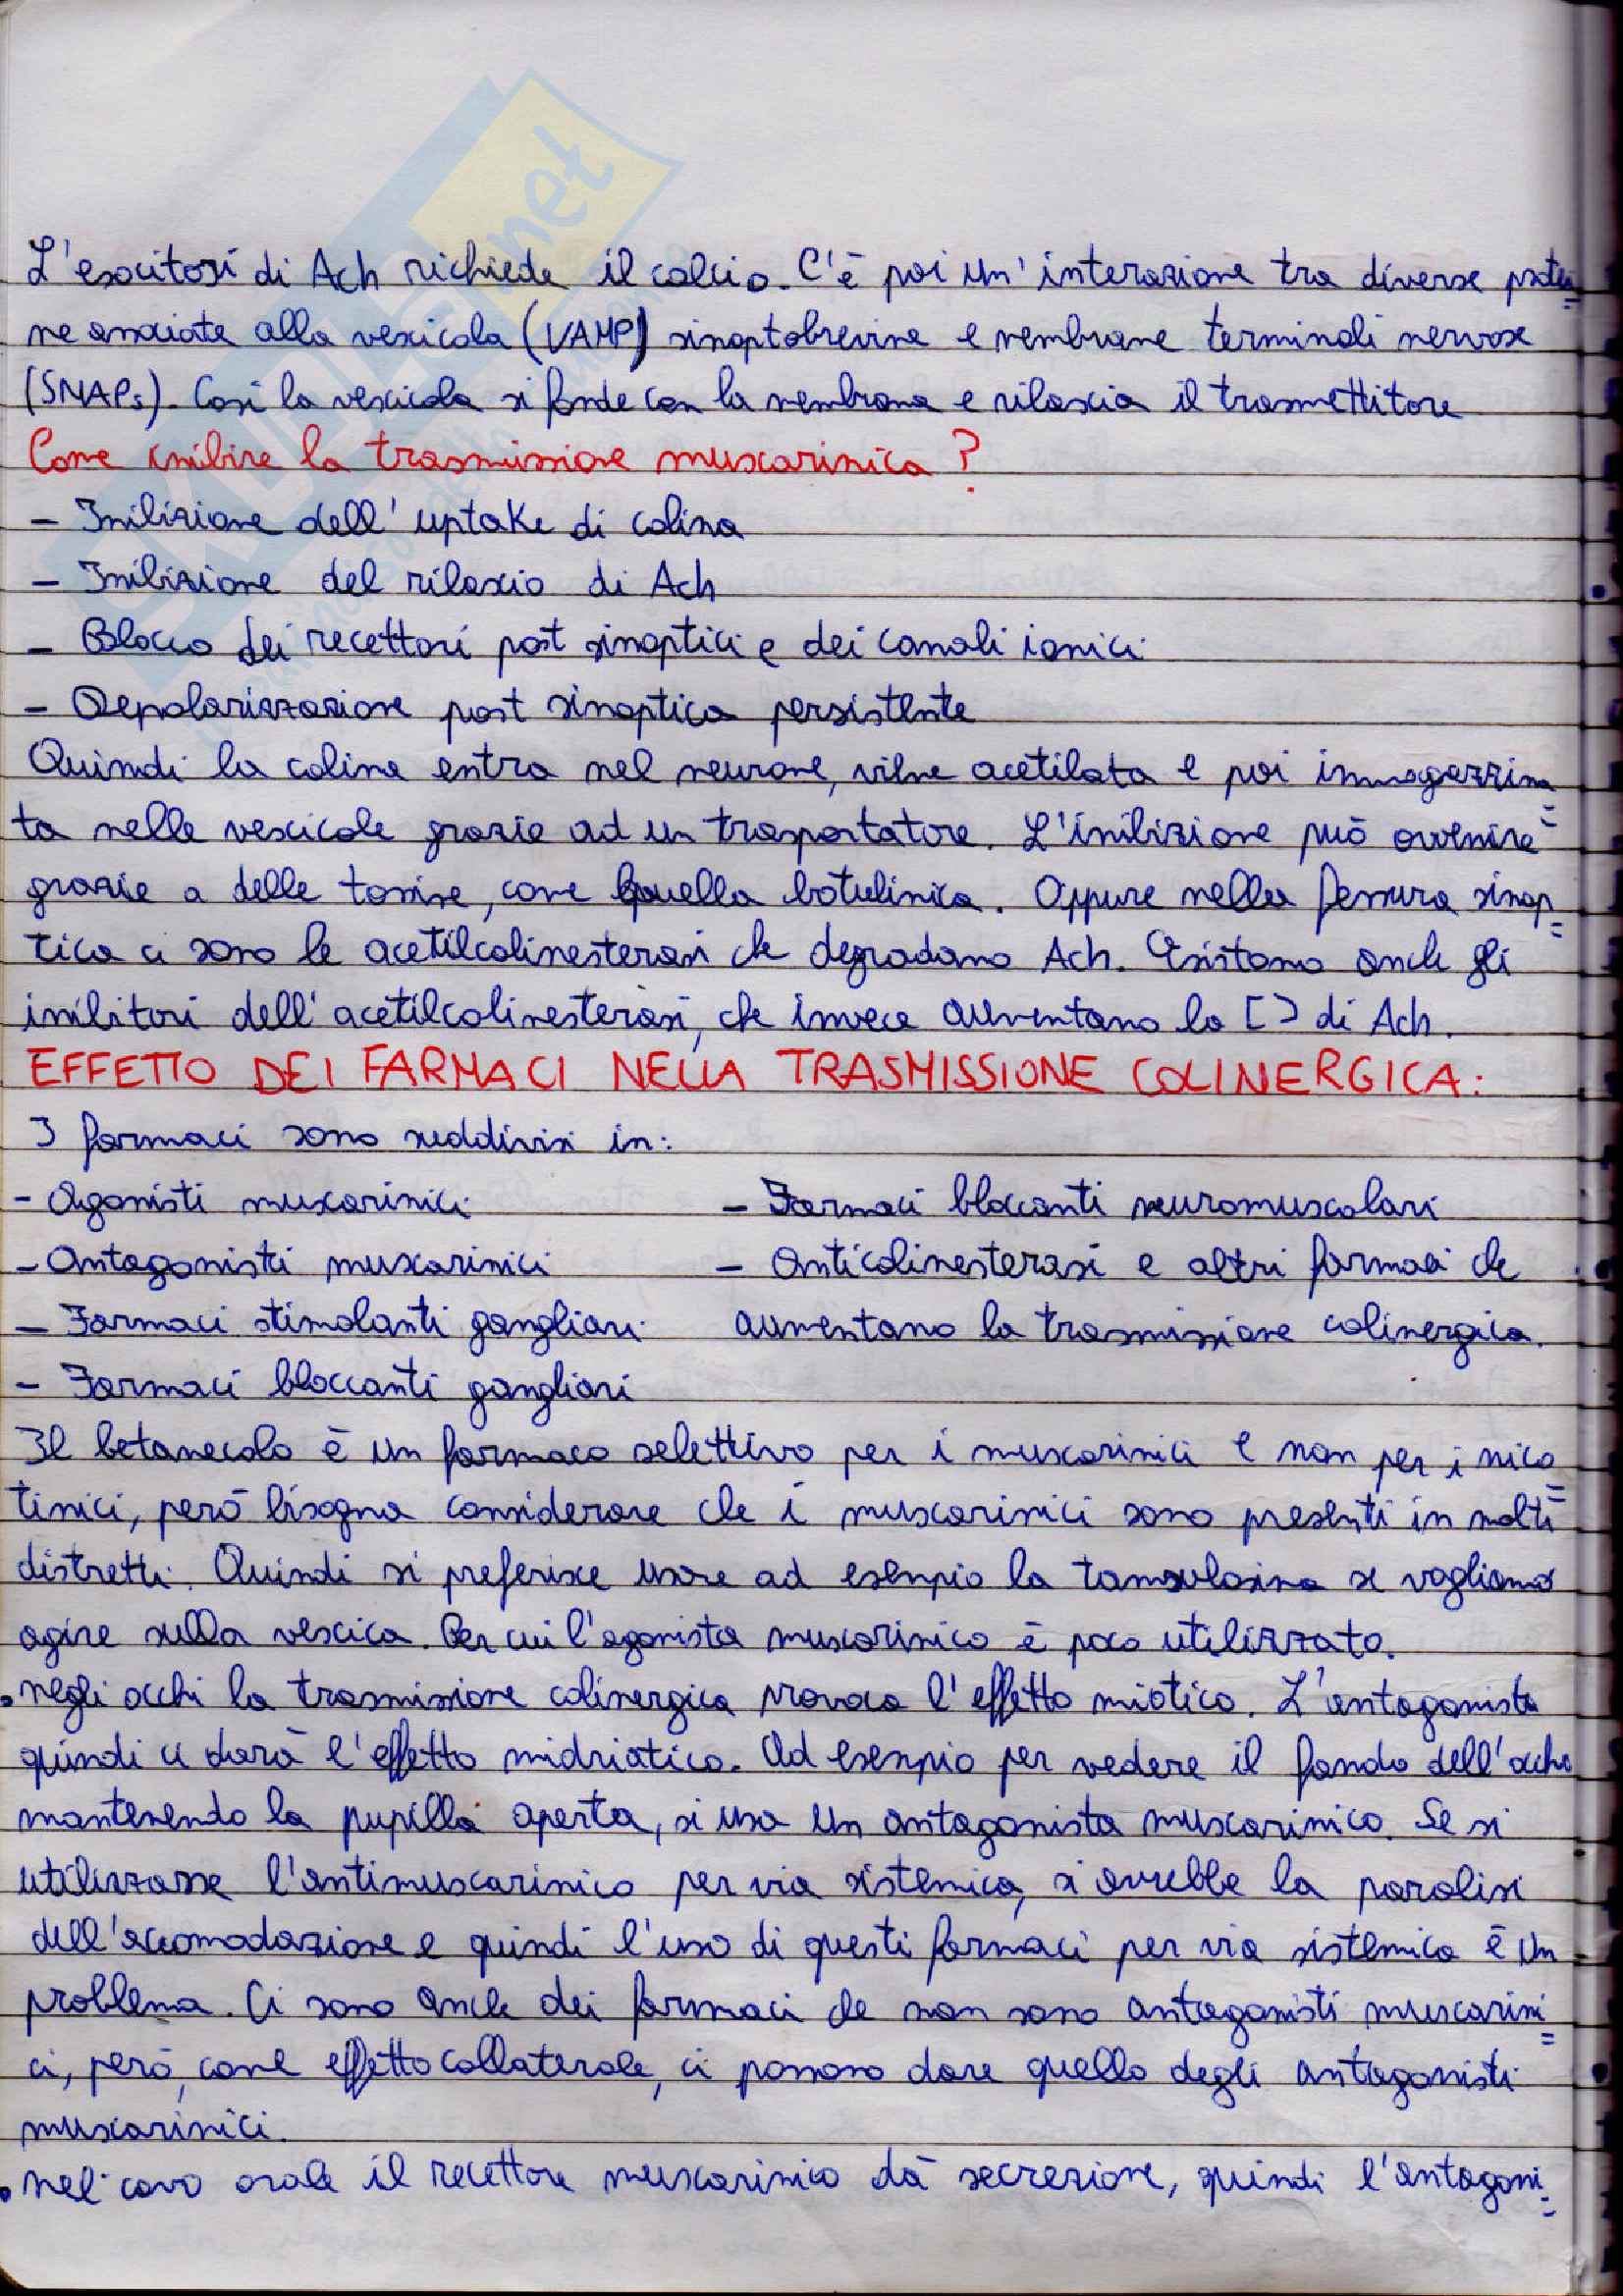 L'esocitosi di Ach richiede il calcio. C'è poi un'interazione tra diverse protei=
ne associate alla vescicola (VAMP) sinaptobrevina e membrane terminali nervose
(SNAPs). Così la vescicola si fonde con la membrana e rilascia il trasmettitore
Come inibire la trasmissione muscarinica?
- Inibizione dell'uptake di colina
- Inibizione del rilascio di Ach
- Blocco dei recettori post sinaptici e dei canali ionici
- Depolarizzazione post sinaptica persistente
Quindi la colina entra nel neurone, viene acetilata e poi immagazzina=
ta nelle vescicole grazie ad un trasportatore. L'inibizione può avvenire
grazie a delle tossine, come quella botulinica. Oppure nella fessura sinap=
tica ci sono le acetilcolinesterasi che degradano Ach. Esistono anche gli
inibitori dell'acetilcolinesterasi, che invece aumentano la [] di Ach.
EFFETTO DEI FARMACI NELLA TRASMISSIONE COLINERGICA:
I farmaci sono suddivisi in:
- Agonisti muscarinici - Farmaci bloccanti neuromuscolari
- Antagonisti muscarinici - Anticolinesterasi e altri farmaci che
- Farmaci stimolanti gangliari aumentano la trasmissione colinergica.
- Farmaci bloccanti gangliari
Il betanecolo è un farmaco selettivo per i muscarinici e non per i nico=
tinici, però bisogna considerare che i muscarinici sono presenti in molti
distretti. Quindi si preferisce usare ad esempio la tamsulosina se vogliamo
agire sulla vescica. Per cui l'agonista muscarinico è poco utilizzato.
• negli occhi la trasmissione colinergica provoca l'effetto miotico. L'antagonista
quindi ci darà l'effetto midriatico. Ad esempio per vedere il fondo dell'occhio
mantenendo la pupilla aperta, si usa un antagonista muscarinico. Se si
utilizzasse l'antimuscarinico per via sistemica, si avrebbe la paralisi
dell'accomodazione e quindi l'uso di questi farmaci per via sistemica è un
problema. Ci sono anche dei farmaci che non sono antagonisti muscarini=
ci, però, come effetto collaterale, ci possono dare quello degli antagonisti
muscarinici.
• nel cavo orale il recettore muscarinico dà secrezione, quindi l'antagoni=